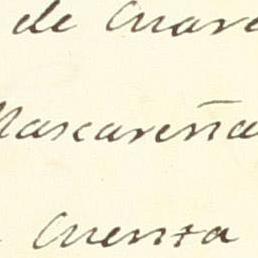 de Cuare
Mascareña
Cuenta